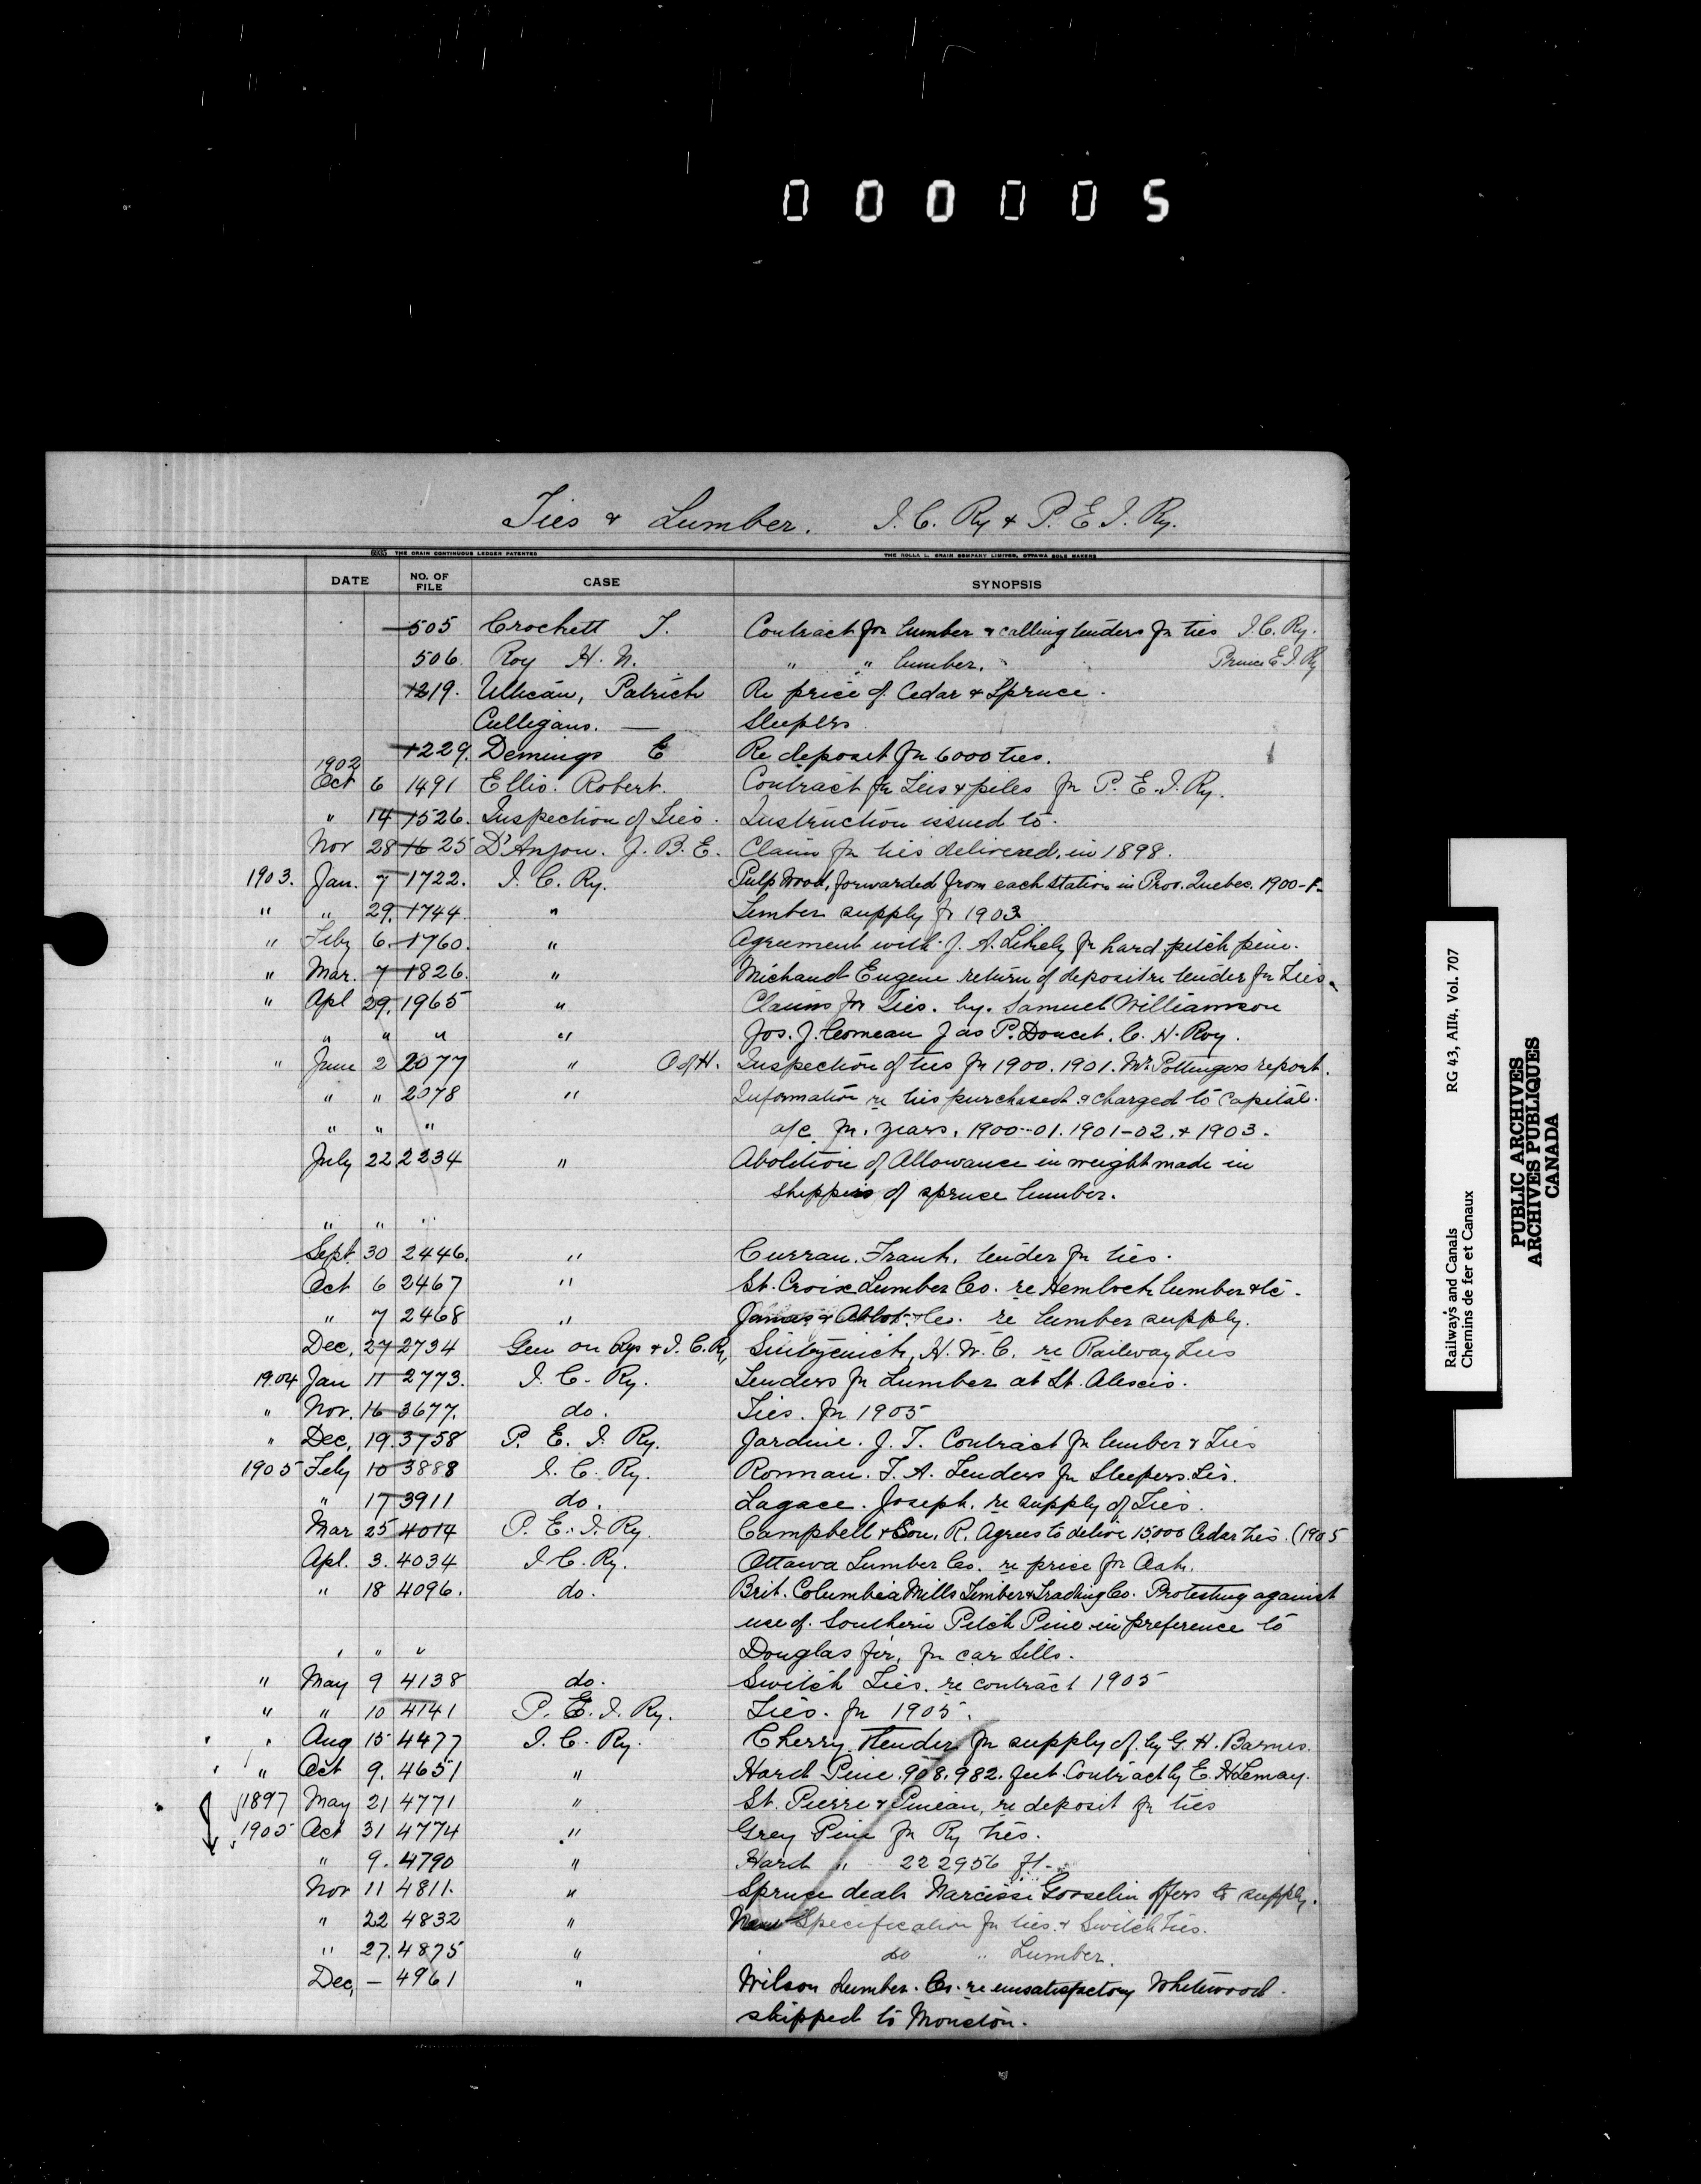 000005
Ties & Lumber. I. C. Ry & P. E. I. Ry.
6035 THE CRAIN CONTINUOUS LEDGER PATENTED THE ROLLA L. CRAIN COMPANY LIMITED, OTTAWA SOLE MAKERS
DATE NO. OF FILE CASE SYNOPSIS
505 Crockett T. Contract for lumber & calling tenders for ties I.C. Ry.
506. Roy H. N. " " lumber. Prince E. I. Ry
1219. Ullican, Patrick Re price of Cedar & Spruce.
Culligans. — Sleepers
1229. Demings E Re deposit for 6000 ties.
1902
Oct 6 1491 Ellis. Robert. Contract for Ties & piles for P. E. I. Ry.
" 14 1526. Inspection of Ties. Instruction issued to.
Nov 28 1625 D'Anjou. J. B. E. Claim for ties delivered, in 1898.
1903. Jan. 7 1722. I. C. Ry. Pulp Wood, forwarded from each station in Prov. Quebec. 1900-1-
" " 29. 1744. " Lumber supply for 1903
" Feby 6. 1760. " Agreement with J. A. Likely for hard pitch pine.
" Mar. 7 1826. " Michaud Eugene return of deposit re tender for Ties.
" Apl 29. 1965 " Claims for Ties. by. Samuel Williamson
" " " " Jos. J. Comeau Jas P. Doucet. C. H. Roy.
" June 2 2077 " O of H. Inspection of ties for 1900. 1901. Mr. Pottingers report.
" " 2078 " Information re ties purchased & charged to Capital.
" " " a/c for. years. 1900-01. 1901-02. & 1903.
July 22 2234 " Abolition of Allowance in weight made in
shippers of spruce lumber.
" " "
Sept. 30 2446. " Curran. Frank. tender for ties.
Oct 6 2467 " St. Croix Lumber Co. re Hemlock lumber &c.
" 7 2468 " James & Abbot & Co. re lumber supply.
Dec. 27 2734 Gen on Rys & I. C. Ry, H. W. C. re Railway Ties
1904 Jan 11 2773. I. C. Ry. Tenders for Lumber at St. Alexis.
" Nov. 16 3677. do. Ties. for 1905
" Dec. 19. 3758 P. E. I. Ry. Jardine. J. T. Contract for lumber & Ties
1905 Feby 10 3888 I. C. Ry. Ronnan. T. A. Tenders for Sleepers. Lis.
" 17 3911 do. Lagace. Joseph. re supply of Ties.
Mar 25 4014 P. E. I. Ry. Campbell & Son. R. Agrees to deliver 15,000 Cedar ties. (1905
Apl. 3. 4034 I. C. Ry. Ottawa Lumber Co. re price for Oak.
" 18 4096. do. Brit. Columbia Mills Timber & Trading Co. Protesting against
use of Southern Pitch Pine in preference to
" " " Douglas fir, for car Sills.
" May 9 4138 do. Switch Ties. re contract 1905
" " 10 4141 P. E. I. Ry. Ties. for 1905.
" Aug 15 4477 I. C. Ry. Cherry. Tender for supply of. by G. H. Barnes.
" Oct 9. 4651 " Hard Pine. 908.982. feet. Contract by E. H Lemay.
1897 May 21 4771 " St. Pierre & Pineau, re deposit for ties
1905 Oct 31 4774 " Grey Pine for Ry ties.
" 9. 4790 " Hard " 222956 ft.
Nov 11 4811. " Spruce deals Narcisse Gosselin offers to supply.
" 22 4832 " New Specification for ties & Switch Ties.
" 27. 4875 " do " Lumber.
Dec, — 4961 " Wilson Lumber. Co. re unsatisfactory Whitewood.
shipped to Moncton.
Railways and Canals RG 43, AII4, Vol. 707
Chemins de fer et Canaux
PUBLIC ARCHIVES
ARCHIVES PUBLIQUES
CANADA